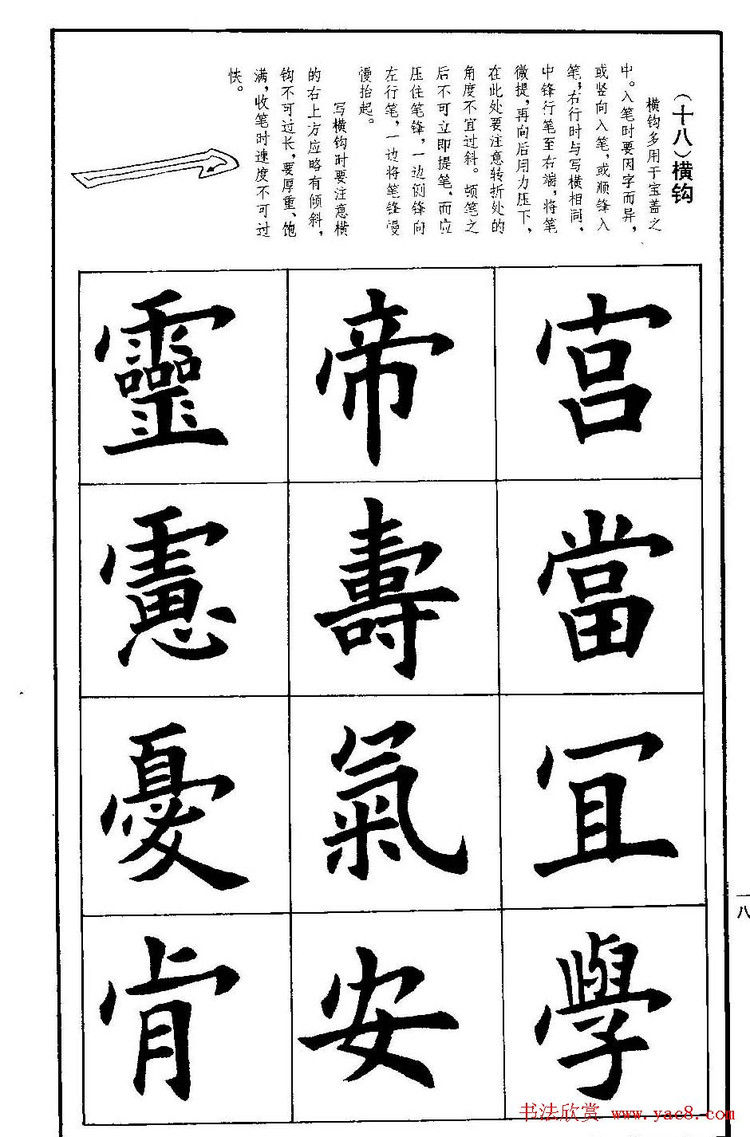 (十八)横钩
横钩多用于宝盖之
中。入笔时要因字而异,
或竖向入笔,或顺锋入
笔;右行时与写横相同,
中锋行笔至右端,将笔
微提,再向后用力压下,
在此处要注意转折处的
角度不宜过斜。顿笔之
后不可立即提笔,而应
压住笔锋,一边侧锋向
左行笔,一边将笔锋慢
慢抬起。
写横钩时要注意横
的右上方应略有倾斜,
钩不可过长,要厚重、饱
满,收笔时速度不可过
快。
宫當冝學
帝壽氣安
靈憲憂肯
一八
书法欣赏 www.yac8.com